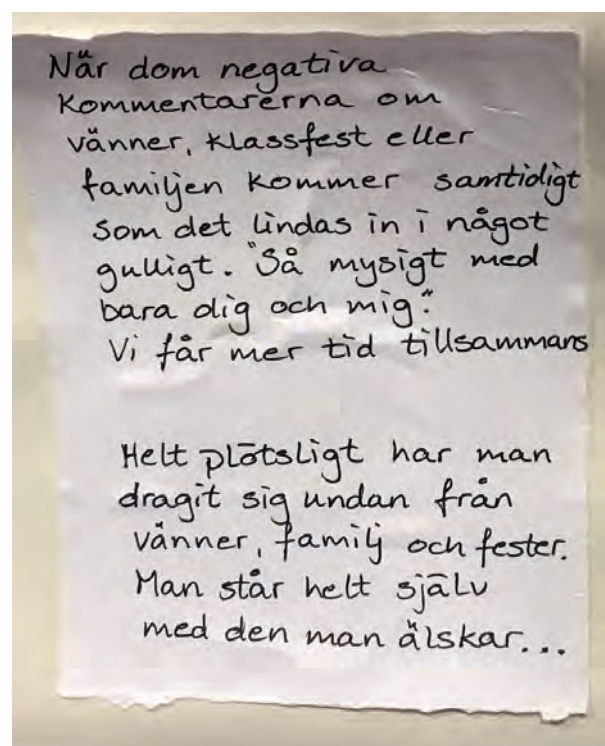 När dom negativa
kommentarerna om
vänner, klassfest eller
familjen kommer samtidigt
som det lindas in i något
gulligt. "Så mysigt med
bara dig och mig."
Vi får mer tid tillsammans
Helt plötsligt har man
dragit sig undan från
vänner, familj och fester.
Man står helt själv
med den man älskar...